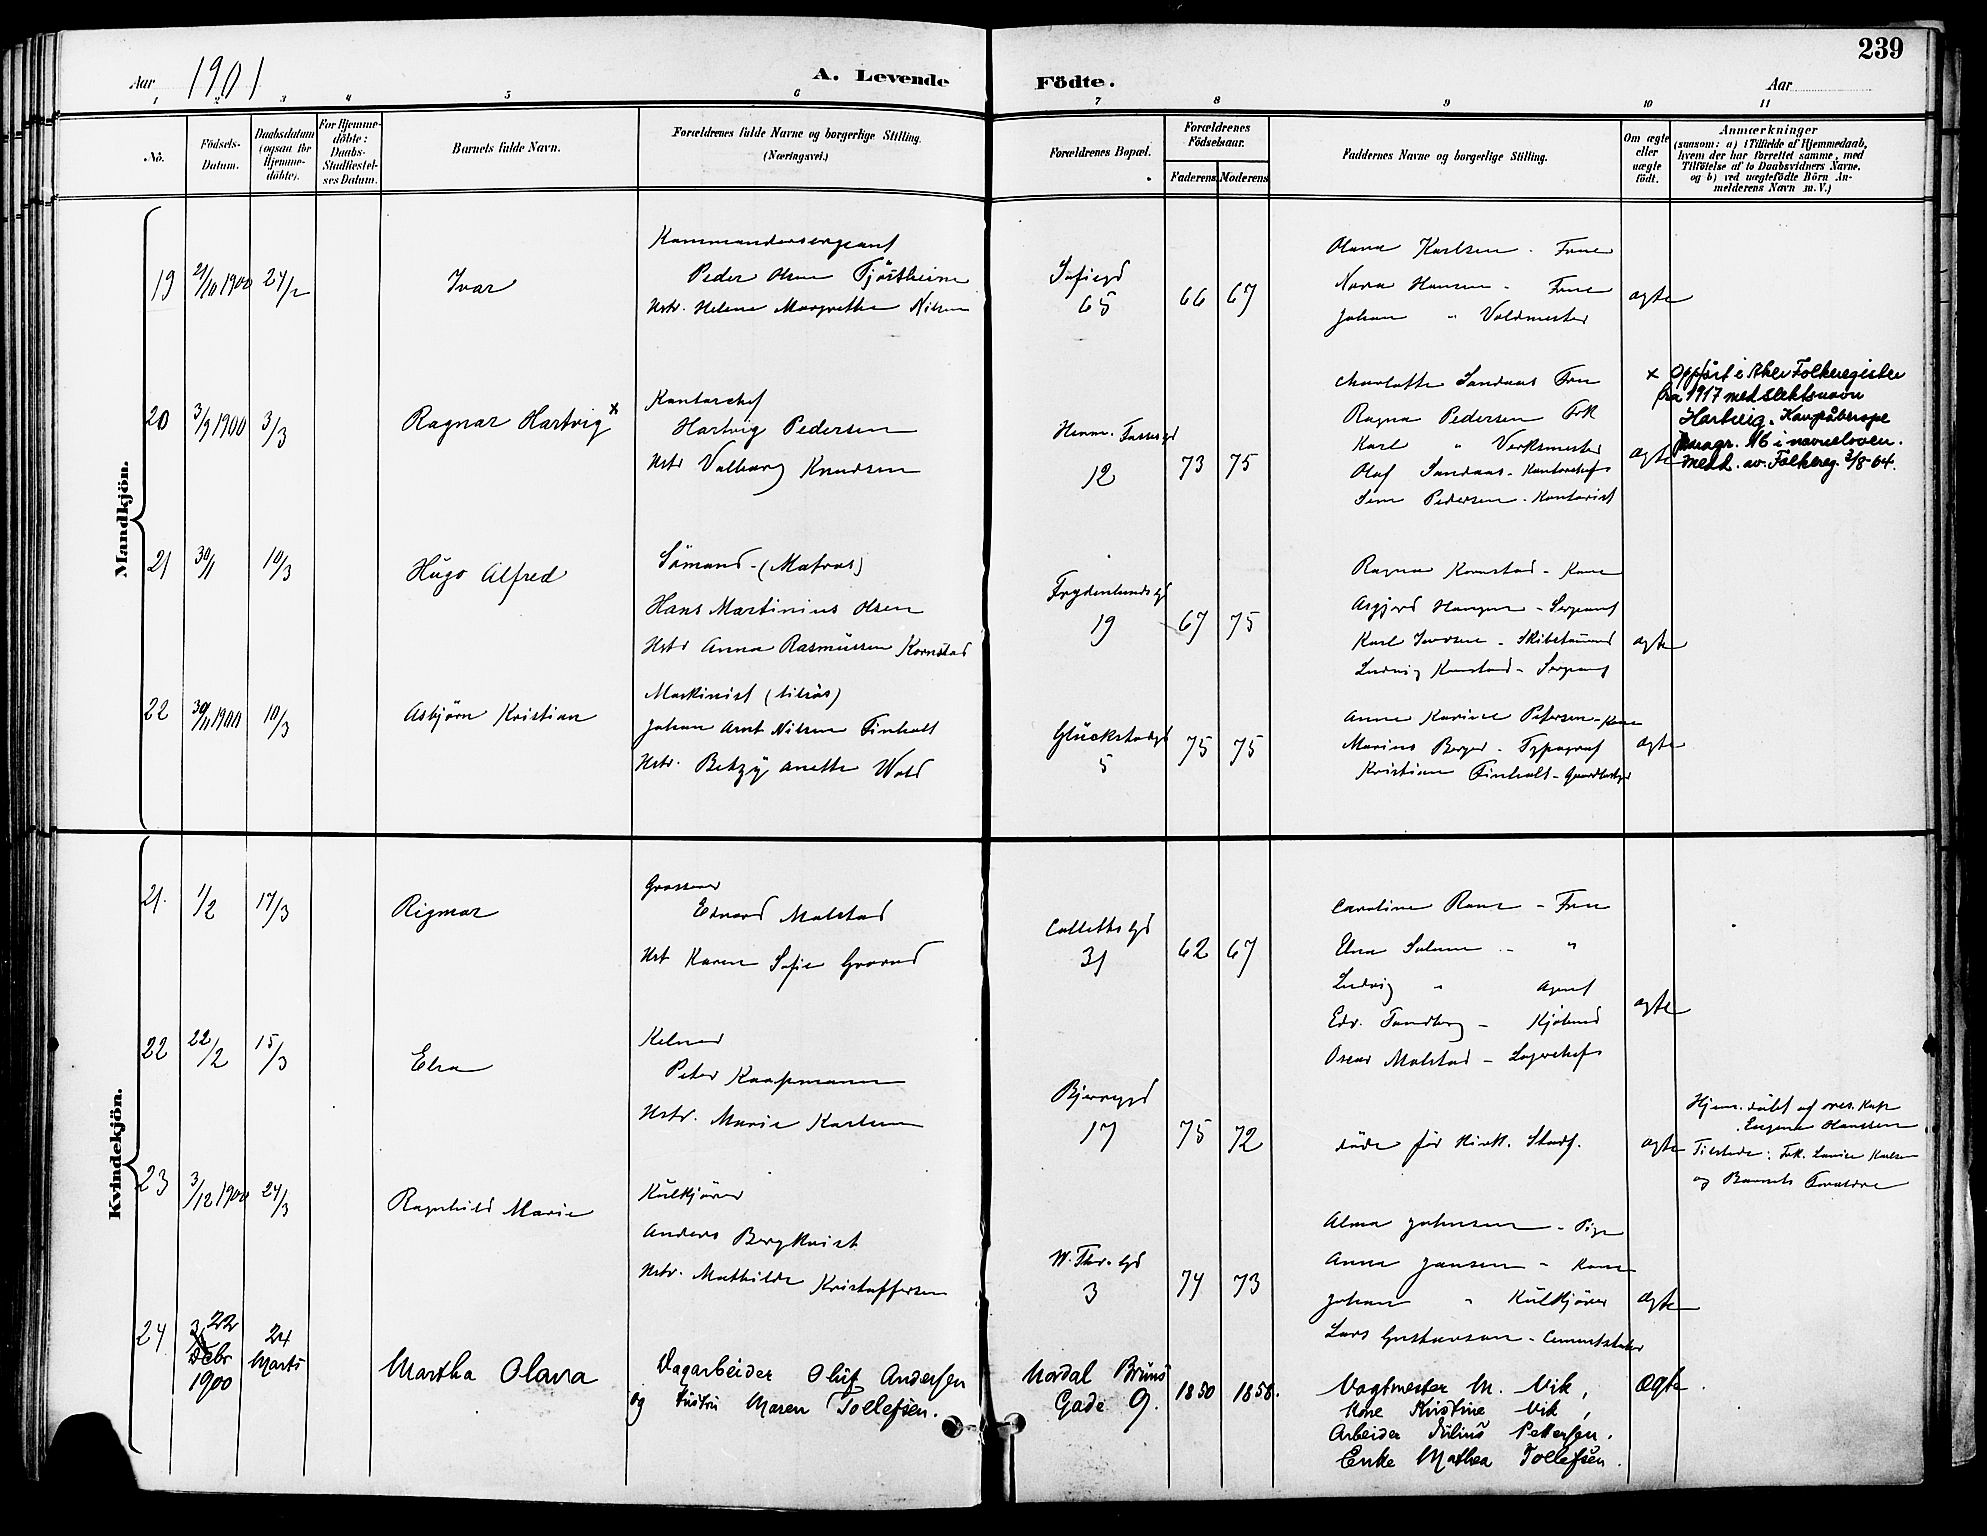 239
Aar 1901
A. Levende Födte.
Aar
1 2 3 4 5 6 7 8 9 10 11
No.
Födsels-Datum.
Daabsdatum (ogsaa for Hjemme-döbte).
For Hjemme-döbte: Daabs-Stadfæstel-ses Datum.
Barnets fulde Navn.
Forældrenes fulde Navne og borgerlige Stilling.
(Næringsvei.)
Forældrenes Bopæl.
Forældrenes Födselsaar.
Faderens. Moderens.
Faddernes Navne og borgerlige Stilling.
Om ægte eller uægte født.
Anmærkninger
(saasom: a) i Tilfælde af Hjemmedaab,
hvem der har forrettet samme, med
Tilföielse af to Daabsvidners Navne,
og b) ved uægtefödte Börn An-
melderens Navn m. V.)
Mandkjön.
19
1900
24/2
Ivar
Kommandersergeant
Peder Olsen Tjöstheim
Hstr. Helene Margrethe Nilsen
Sofiegd
65
66 67
Olava Karlsen - Frue
Nora Hansen - Frue
Johan " Valdmester
ægte
20
3/9 1900
3/3
Ragnar Hartvig x
Kontorchef
Hartvig Pedersen
Hstr Valborg Knudsen
12
73 75
Charlotte Sandaas Frue
Ragna Pedersen Frk
Karl " Verksmester
Olaf Sandaas - Kontorchef
Pedersen - Kontorist
ægte
x Oppført i Aker Folkeregister
fra 1917 med slektsnavn
Hartvig. Kan påberope
paragr. 16 i navneloven.
Medd. av Folkereg. 3/8-64.
21
30/1
10/3
Hugo Alfred
Sömand - (Matros)
Hans Martinius Olsen
Hstr Anna Rasmussen Kornstad
Frydenlundsgd
19
67 75
Ragna Kornstad - Kone
Asgjerd Haugen - Sergeant
Karl Iversen - Skibstömmand
Ludvig Kornstad - Sergeant
ægte
22
30/11 1900
10/3
Asbjörn Kristian
Maskinist (tilsös)
Johan Arnt Nilsen Finholt
Hstr. Betzy Anette Wold
Glückstadgd
5
75 75
Anne Karine Petersen - Kone
Marius Berger - Typograf
Kristian Finholt -
ægte
Kvindekjön.
21.
1/2
17/3
Rigmor
Grosserer
Edvard Malstad
Hst Karen Sofie
Collettsgd
31
62 67
Caroline - Frue
Elna - "
Ludvig " Agent
Edv. Sandberg - Kjöbmd
Oscar Malstad - Lagerchef
ægte
22
22/2
15/3
Elsa
Kelner
Peter Koopmann
Hstr. Marie Karlsen
17
75 72
döde för Kirk. Stadf.
ægte
Hjem. döbt af res. Kap
Eugene Hanssen
Tilstede: Frk. Karlsen
og Barnets Forældre
23
3/12 1900
24/3
Ragnhild Marie
Kulkjörer
Anders Bergkvist
Hstr. Mathilde Kristoffersen
W. Thr. Gd
3
74 73
Alma Johnsen - Pige
Anna Jansen - Kone
Johan " Kulkjörer
Lars Gustavson - Cementstöber
ægte
24
22
Debr
1900
24
Marts
Martha Olava
Dagarbeider Oluf Andersen
og Hustru Maren Tollefsen.
Nordal Bruns
Gade 9.
1850 1858.
Vagtmester M. Vik,
Kone Kristine Vik,
Arbeider Julius Pettersen.
Enke Mathea Tollefsen.
Ægte